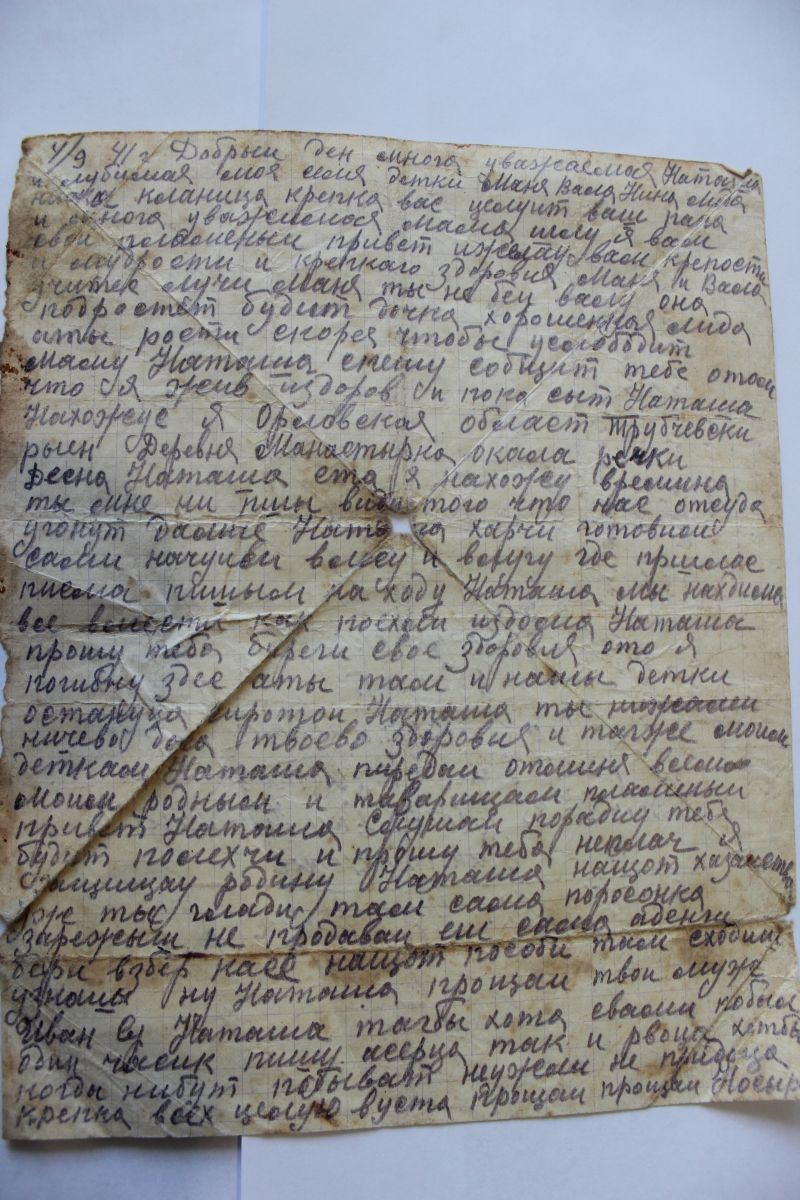 4/9 41 г Добрыи ден многа уважаемая Наташа
и лубимая моя сімя детки Маня Васа Нина Лида
ниска кланица крепка вас целуит ваш папа
и многа уважаемая мама шлу я вам
свои пламеныи привет и желау вам крепости
и мубрости и крепкаго здоровия Маня и Васа
учитес лучи Маня ты не беи васу она
подростет будит дочка хорошенкая лида
аты рости скорея чтобы усвободит
маму Наташа спешу собщит тебе отом
что я жив издоров и пока сыт Наташа
Нахожус я Орловская област трубчевски
рыен Деревня Манастырка окала речки
Десна Наташа ета я нахожу времина
ты мне ни пшы виду того что нас отсуда
угонут далше Наташа харчи готовим
сами начуим влесу и влугу где пришлос
писма пишым на ходу Наташа мы нахдимса
все вместе как поехали издома Наташа
прошу тебя береги свое здоровя ото я
погибну здес аты там и нашы детки
остануца сиротои Наташа ты нижалеи
ничево дла твоево здоровия и тагже моим
деткам Наташа передаи отминя всем
моим родным и таварищам пламиныи
привет Наташа Слушаи порадку тебе
будит полехчи и прошу тебя неплач я
защищау родину Наташа нащот хазаиства
ты гляди там сама поросонка
зарежыш не продаваи еш сама аденги
бери взбер касе нащот пособи там сходиш
узнаиш ну Наташа прощаи твои муж
Иван Наташа тагбы хота свами побыл
один часик пишу асерца так и рвоца хотбы
когда нибут побыват неужели не придеца
крепка всех целую вуста Прощаи прощаи